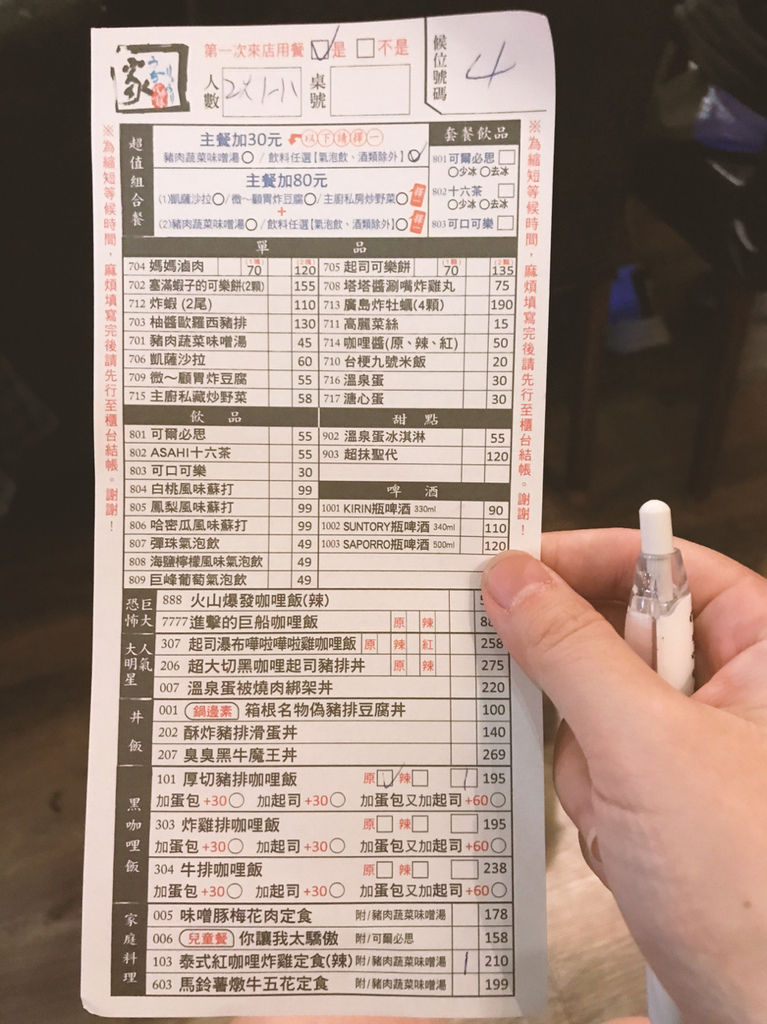 家
第一次來店用餐 ☑是 □不是
人數 2大1小 桌號
候位號碼 4
超值組合餐
主餐加30元 以下請擇一
豬肉蔬菜味噌湯○ / 飲料任選【氣泡飲、酒類除外】○
主餐加80元
(1)凱薩沙拉○/微～顧胃炸豆腐○/主廚私房炒野菜○
+
(2)豬肉蔬菜味噌湯○ / 飲料任選【氣泡飲、酒類除外】○
套餐飲品
801 可爾必思 □
○少冰 ○去冰
802 十六茶 □
○少冰 ○去冰
803 可口可樂 □
※為縮短等候時間，麻煩填寫完後請先行至櫃台結帳。謝謝！
※為縮短等候時間，麻煩填寫完後請先行至櫃台結帳。謝謝！
單品
704 媽媽滷肉 70 120 705 起司可樂餅 70 135
702 塞滿蝦子的可樂餅(2顆) 155 708 塔塔醬涮嘴炸雞丸 75
712 炸蝦 (2尾) 110 713 廣島炸牡蠣(4顆) 190
703 柚醬歐羅西豬排 130 711 高麗菜絲 15
701 豬肉蔬菜味噌湯 45 714 咖哩醬(原、辣、紅) 50
706 凱薩沙拉 60 710 台梗九號米飯 20
709 微～顧胃炸豆腐 55 716 溫泉蛋 30
715 主廚私藏炒野菜 58 717 溏心蛋 30
飲品
801 可爾必思 55
802 ASAHI十六茶 55
803 可口可樂 30
804 白桃風味蘇打 99
805 鳳梨風味蘇打 99
806 哈密瓜風味蘇打 99
807 彈珠氣泡飲 49
808 海鹽檸檬風味氣泡飲 49
809 巨峰葡萄氣泡飲 49
甜點
902 溫泉蛋冰淇淋 55
903 超抹聖代 120
啤酒
1001 KIRIN瓶啤酒 330ml 90
1002 SUNTORY瓶啤酒 340ml 110
1003 SAPORRO瓶啤酒 500ml 120
恐怖巨大
888 火山爆發咖哩飯(辣)
7777 進擊的巨船咖哩飯 原 辣
大明星人氣
307 起司瀑布嘩啦嘩啦雞咖哩飯 原 辣 紅 258
206 超大切黑咖哩起司豬排丼 原 辣 275
007 溫泉蛋被燒肉綁架丼 220
丼飯
001 鍋邊素 箱根名物偽豬排豆腐丼 100
202 酥炸豬排滑蛋丼 140
207 臭臭黑牛魔王丼 269
黑咖哩飯
101 厚切豬排咖哩飯 原☑ 辣□ 1 195
加蛋包+30○ 加起司+30○ 加蛋包又加起司+60○
303 炸雞排咖哩飯 原□ 辣□ 195
加蛋包+30○ 加起司+30○ 加蛋包又加起司+60○
304 牛排咖哩飯 原□ 辣□ 238
加蛋包+30○ 加起司+30○ 加蛋包又加起司+60○
家庭料理
005 味噌豚梅花肉定食 附/豬肉蔬菜味噌湯 178
006 兒童餐 你讓我太驕傲 附/可爾必思 158
103 泰式紅咖哩炸雞定食(辣) 附/豬肉蔬菜味噌湯 1 210
603 馬鈴薯燉牛五花定食 附/豬肉蔬菜味噌湯 199